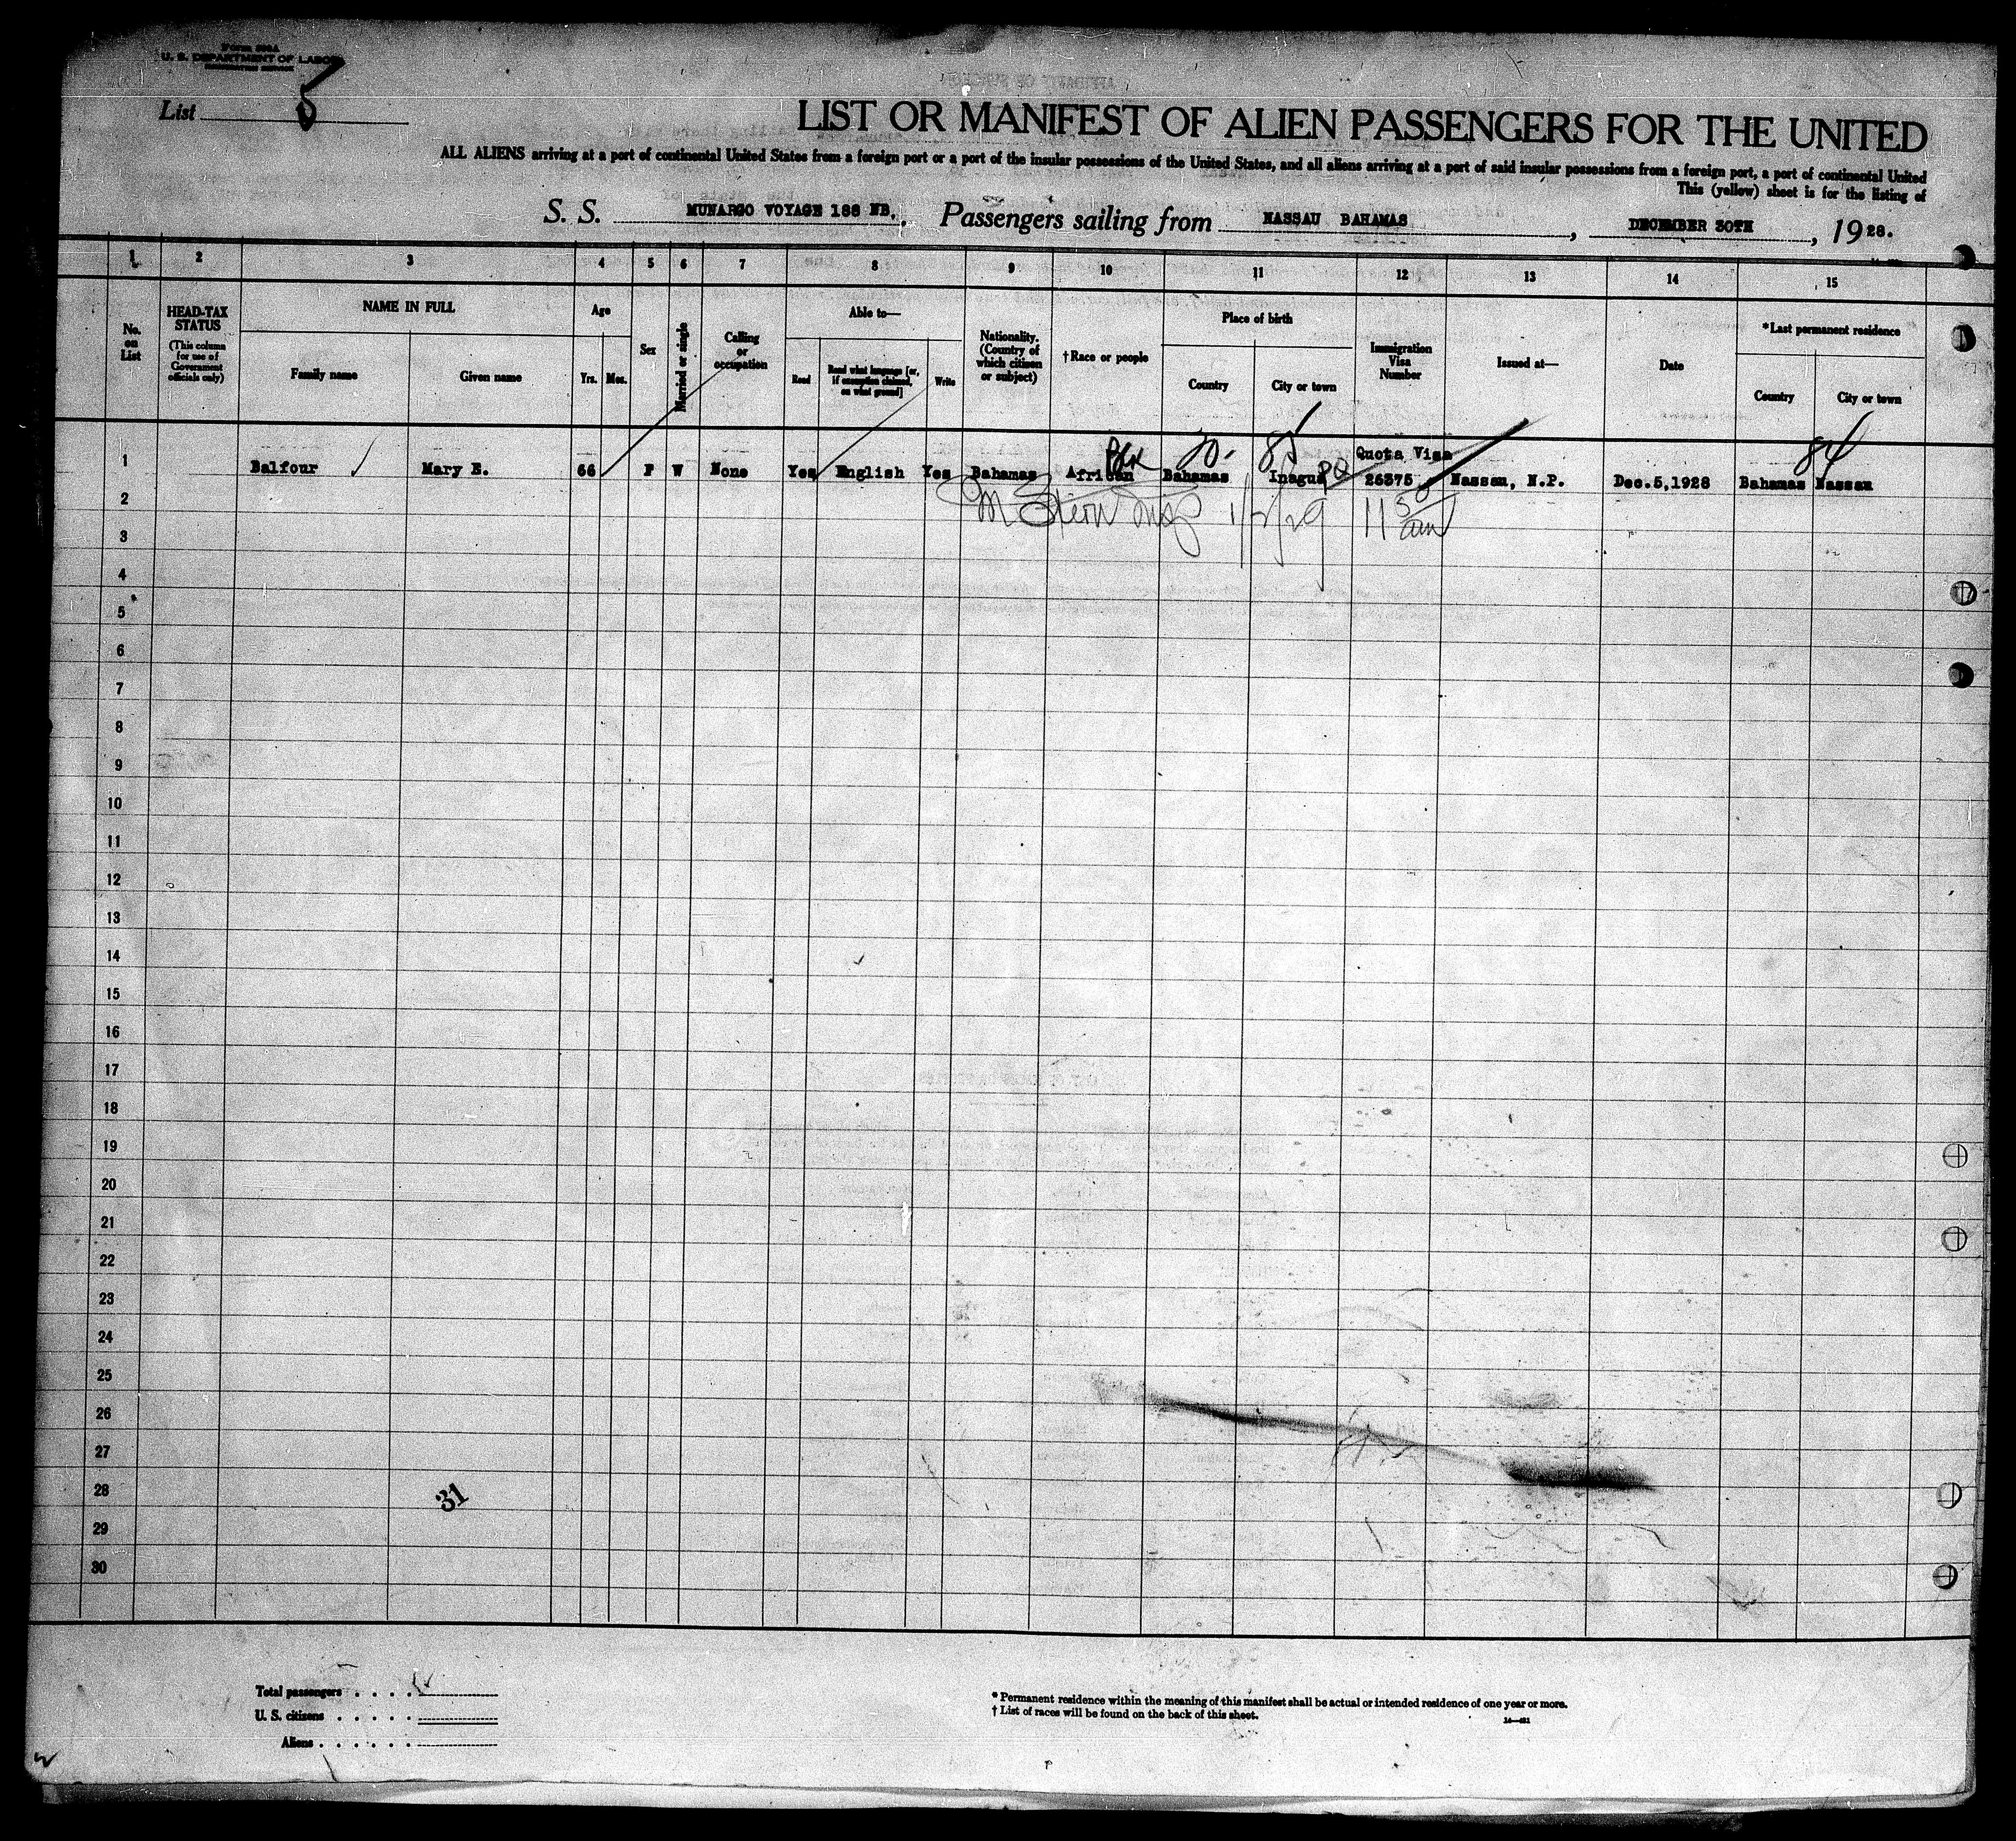 Form 500A
U. S. DEPARTMENT OF LABOR
IMMIGRATION SERVICE
List 8
LIST OR MANIFEST OF ALIEN PASSENGERS FOR THE UNITED
ALL ALIENS arriving at a port of continental United States from a foreign port or a port of the insular possessions of the United States, and all aliens arriving at a port of said insular possessions from a foreign port, a port of continental United
This (yellow) sheet is for the listing of
S. S. MUNARGO VOYAGE 188 NB. , Passengers sailing from NASSAU BAHAMAS , DECEMBER 30TH , 1928.
1 2 3 4 5 6 7 8 9 10 11 12 13 14 15
No. on List
HEAD-TAX STATUS
(This column for use of Government officials only)
NAME IN FULL
Family name
Given name
Age
Yrs. Mos.
Sex
Married or single
Calling or occupation
Able to—
Read
Read what language [or, if exemption claimed, on what ground]
Write
Nationality. (Country of which citizen or subject)
†Race or people
Place of birth
Country
City or town
Immigration Visa Number
Issued at—
Date
*Last permanent residence
Country
City or town
Blk 84
Quota Visa
1 Balfour Mary E. 66 F W None Yes English Yes Bahamas African Bahamas Inagua 26375 Nassau, N.P. Dec.5,1928 Bahamas Nassau
1/2/29 11 50 am
2
3
4
5
6
7
8
9
10
11
12
13
14
15
16
17
18
19
20
21
22
23
24
25
26
27
28
29
30
31
Total passengers . . . .
U. S. citizens . . . . .
Aliens . . . . . .
* Permanent residence within the meaning of this manifest shall be actual or intended residence of one year or more.
† List of races will be found on the back of this sheet.